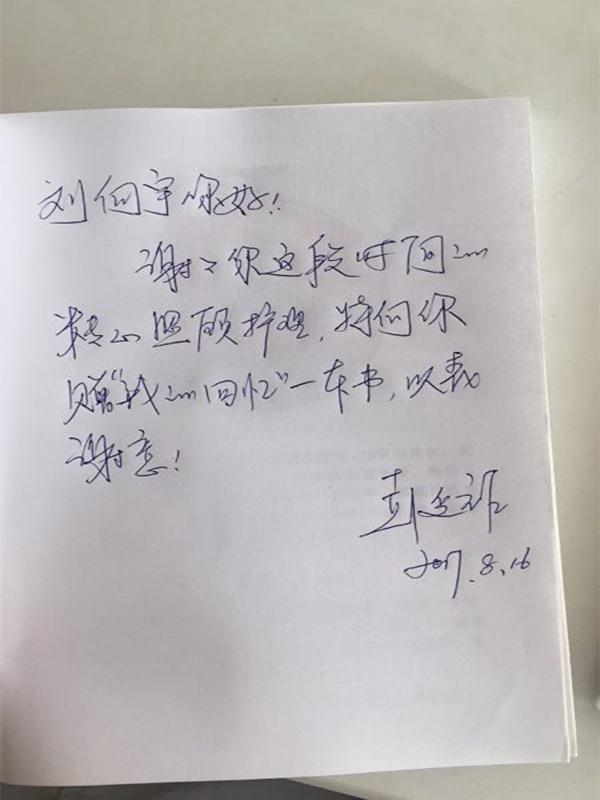 刘向宇你好!
谢谢你这段时间的
精心照顾护理,特向你
赠“我的回忆”一本书,以表
谢意!
彭
2017.8.16